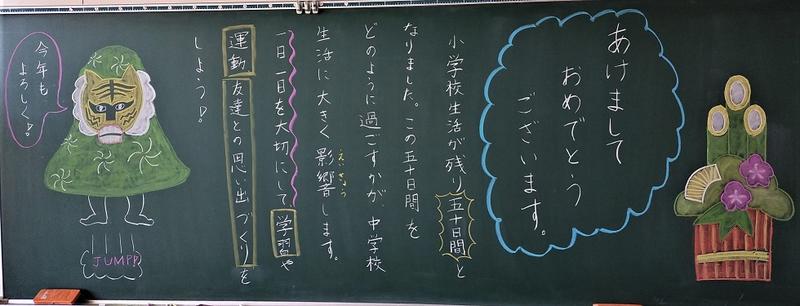 あけまして
おめでとう
ございます。
小学校生活が残り五十日間と
なりました。この五十日間を
どのように過ごすかが、中学校
生活に大きく影響します。
えいきょう
一日一日を大切にして学習や
運動友達との思い出づくりを
しよう!
今年も
よろしく!
JUMPP